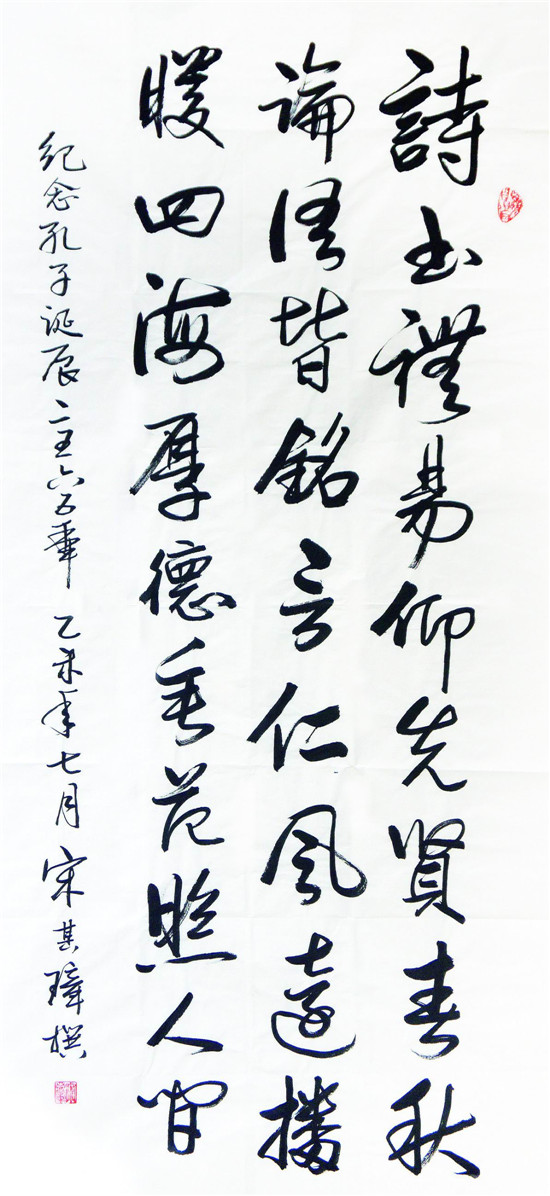 詩书禮易仰先贤春秋
論语皆銘言仁风遠播
暖四海厚德垂范照人间
纪念孔子诞辰二五六五年 乙未年七月 宋其璋撰